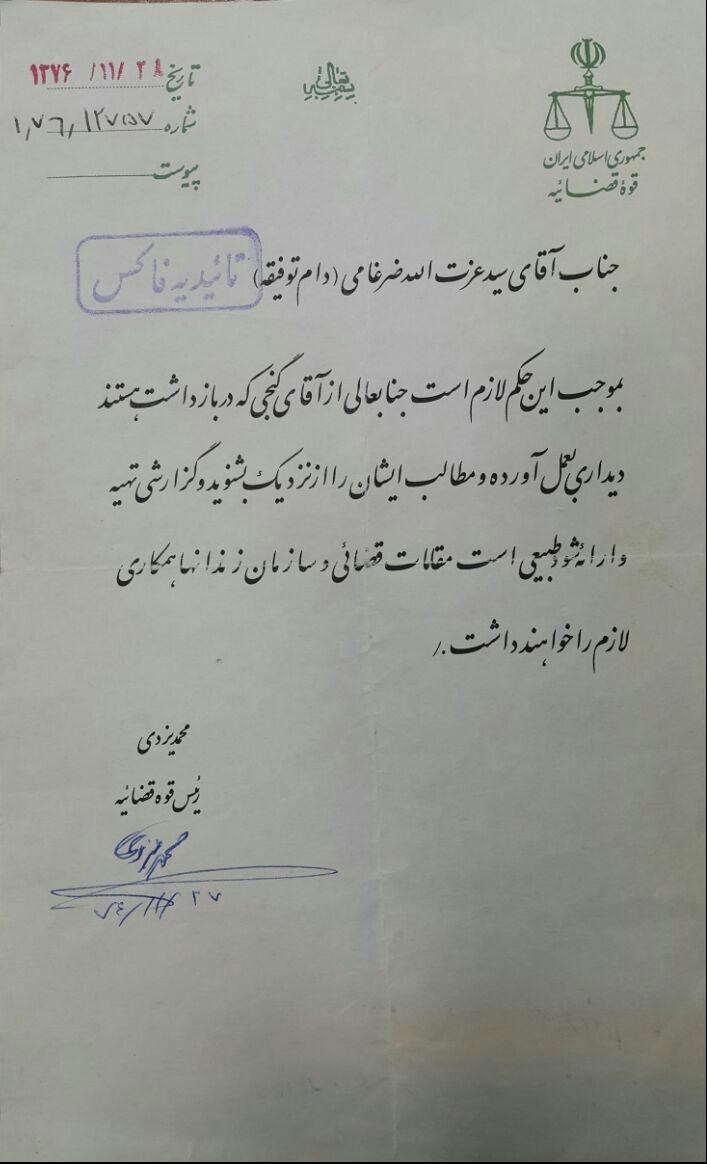 جمهوری اسلامی ایران
قوهٔ قضائیه
بسمه تعالی
تاریخ ۱۳۷۶/۱۱/۲۸
شماره ۱٫۷۶٫۱۲۷۵۷
پیوست
جناب آقای سید عزت الله ضرغامی (دام توفیقه)
تائیدیه فاکس
بموجب این حکم لازم است جنابعالی از آقای گنجی که در بازداشت هستند
دیداری بعمل آورده و مطالب ایشان را از نزدیک بشنوید و گزارشی تهیه
و ارائه شود طبیعی است مقامات قضائی و سازمان زندانها همکاری
لازم را خواهند داشت ./
محمد یزدی
رئیس قوه قضائیه